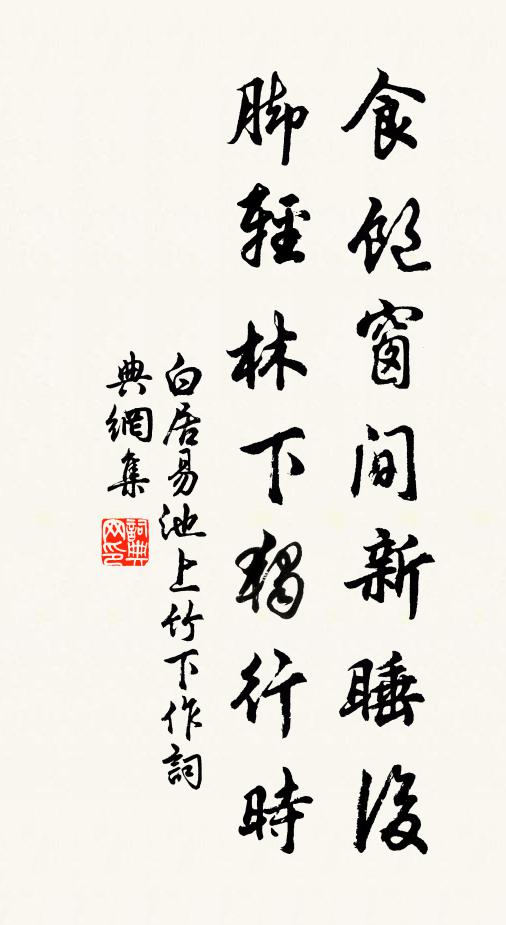 食飽窗間新睡後
脚輕林下獨行時
白居易池上竹下作詞
典網集
詞典網印